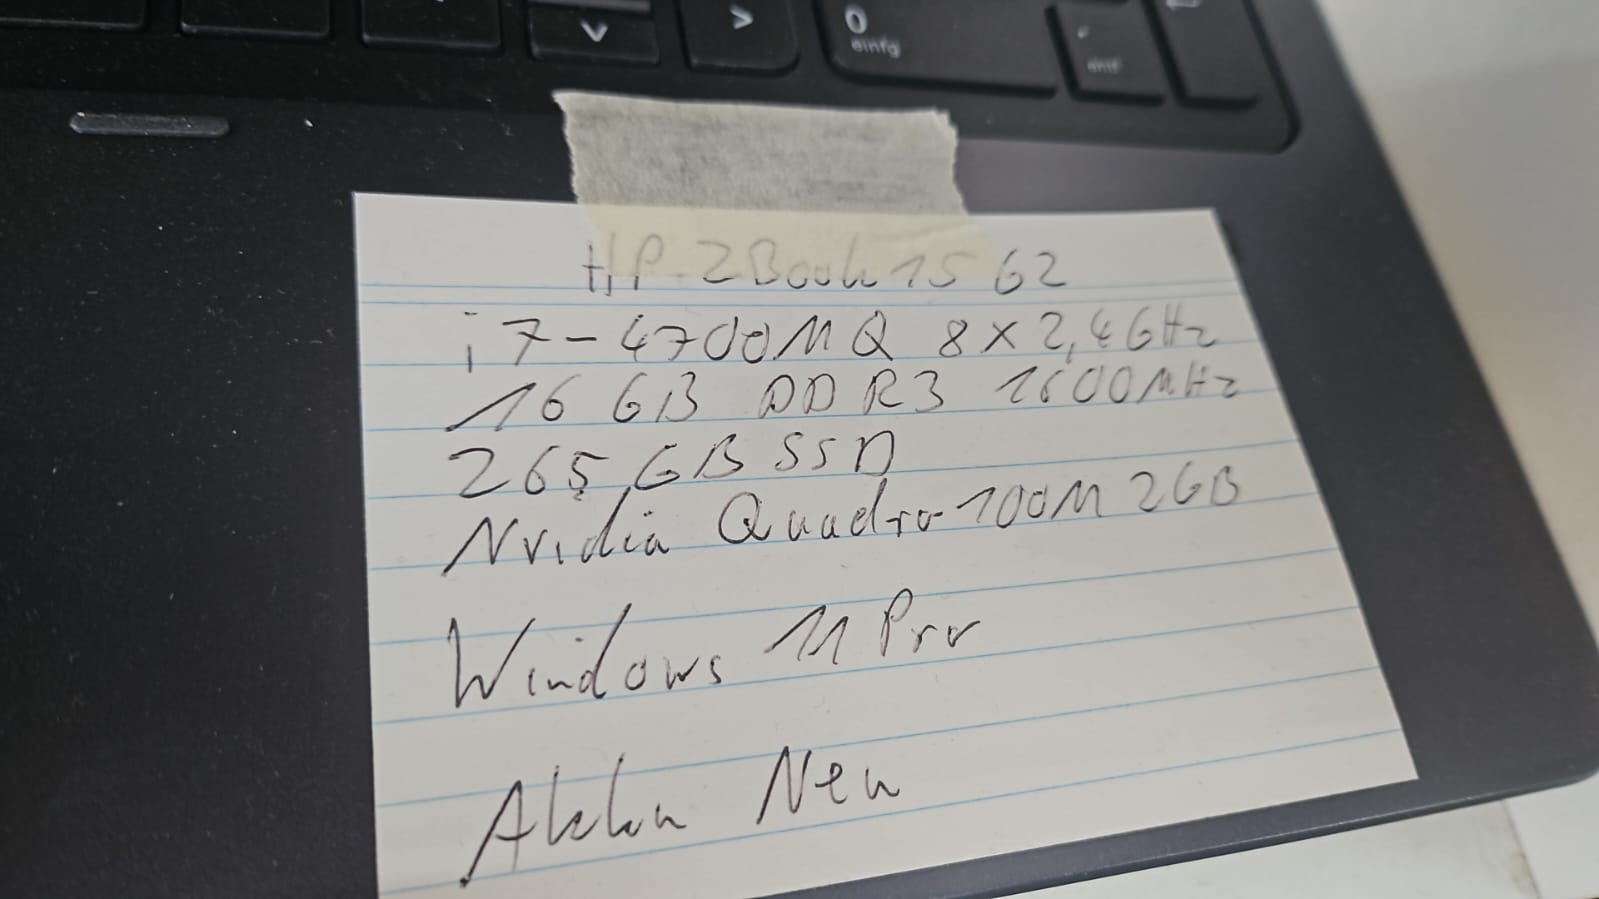 0
einfg
entf
HP ZBook 15 G2
i7-4700MQ 8x2,4GHz
16 GB DDR3 1600MHz
265 GB SSD
Nvidia Quadro 100M 2GB
Windows 11 Pro
Akku Neu